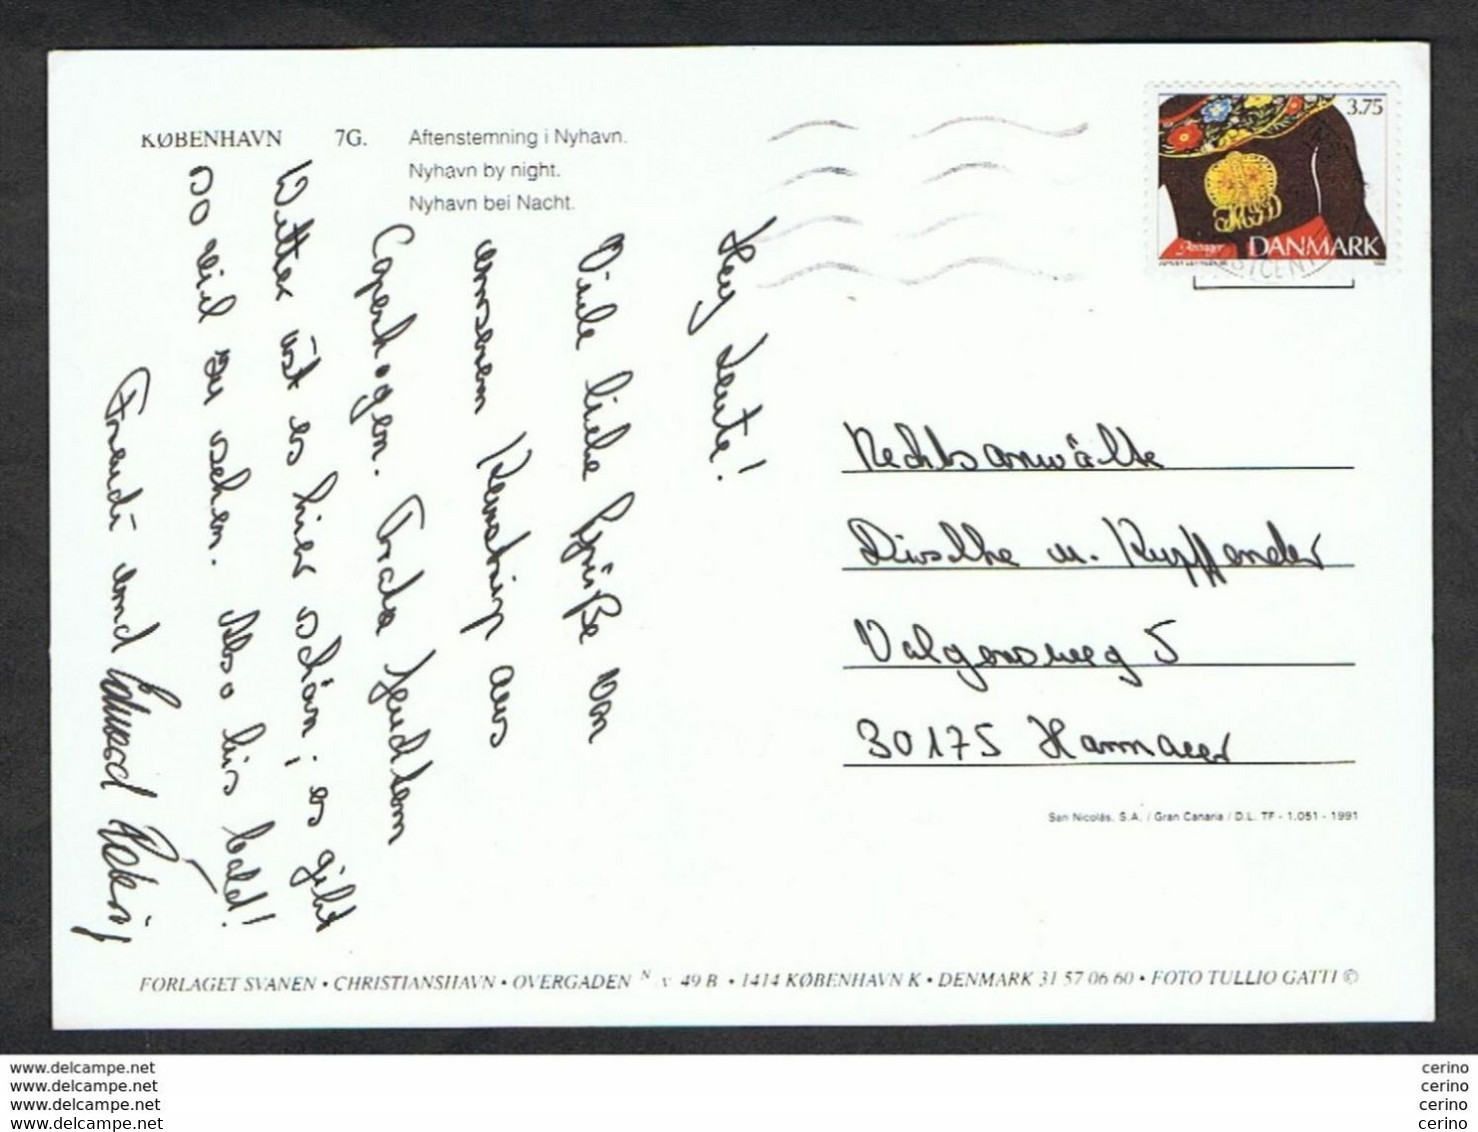 KØBENHAVN 7G. Aftenstemning i Nyhavn.
Nyhavn by night.
Nyhavn bei Nacht.
3.75
Amager DANMARK
Hey Leute!
Viele liebe Grüße von
unserem Kurztrip aus
Copenhagen. Trotz feuchtem
Wetter ist es hier schön; es gibt
so viel zu sehen. Also bis bald!
und
Rechtsanwälte
u.
5
30175 Hannover
San Nicolás, S.A. / Gran Canaria / D.L. TF - 1.051 - 1991
FORLAGET SVANEN • CHRISTIANSHAVN • OVERGADEN N. V. 49 B • 1414 KØBENHAVN K • DENMARK 31 57 06 60 • FOTO TULLIO GATTI ©
www.delcampe.net
www.delcampe.net
www.delcampe.net
www.delcampe.net
cerino
cerino
cerino
cerino